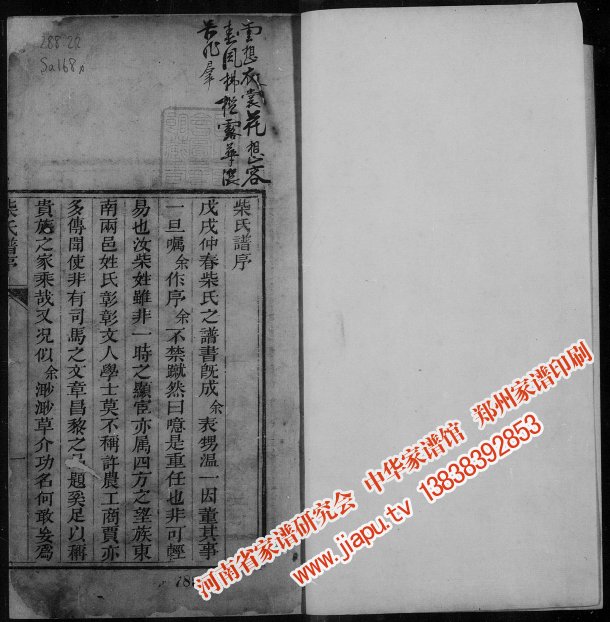 雲想衣裳花想容
春風拂檻露華濃
288.22
Sa168
柴氏譜序
戊戌仲春柴氏之譜書旣成余表甥溫一因董其事
一旦嘱余作序余不禁蹴然曰噫是重任也非可輕
易也汝柴姓雖非一時之顯宦亦属四方之望族東
南兩邑姓氏彰彰文人學士莫不稱許農工商賈亦
多傳聞使非有司馬之文章昌黎之題奚足以稱
貴族之家乘哉又况似余渺渺草介功名何敢妄爲
柴氏譜序
河南省家谱研究会 中华家谱馆 郑州家谱印刷
www.jiapu.tv 13838392853